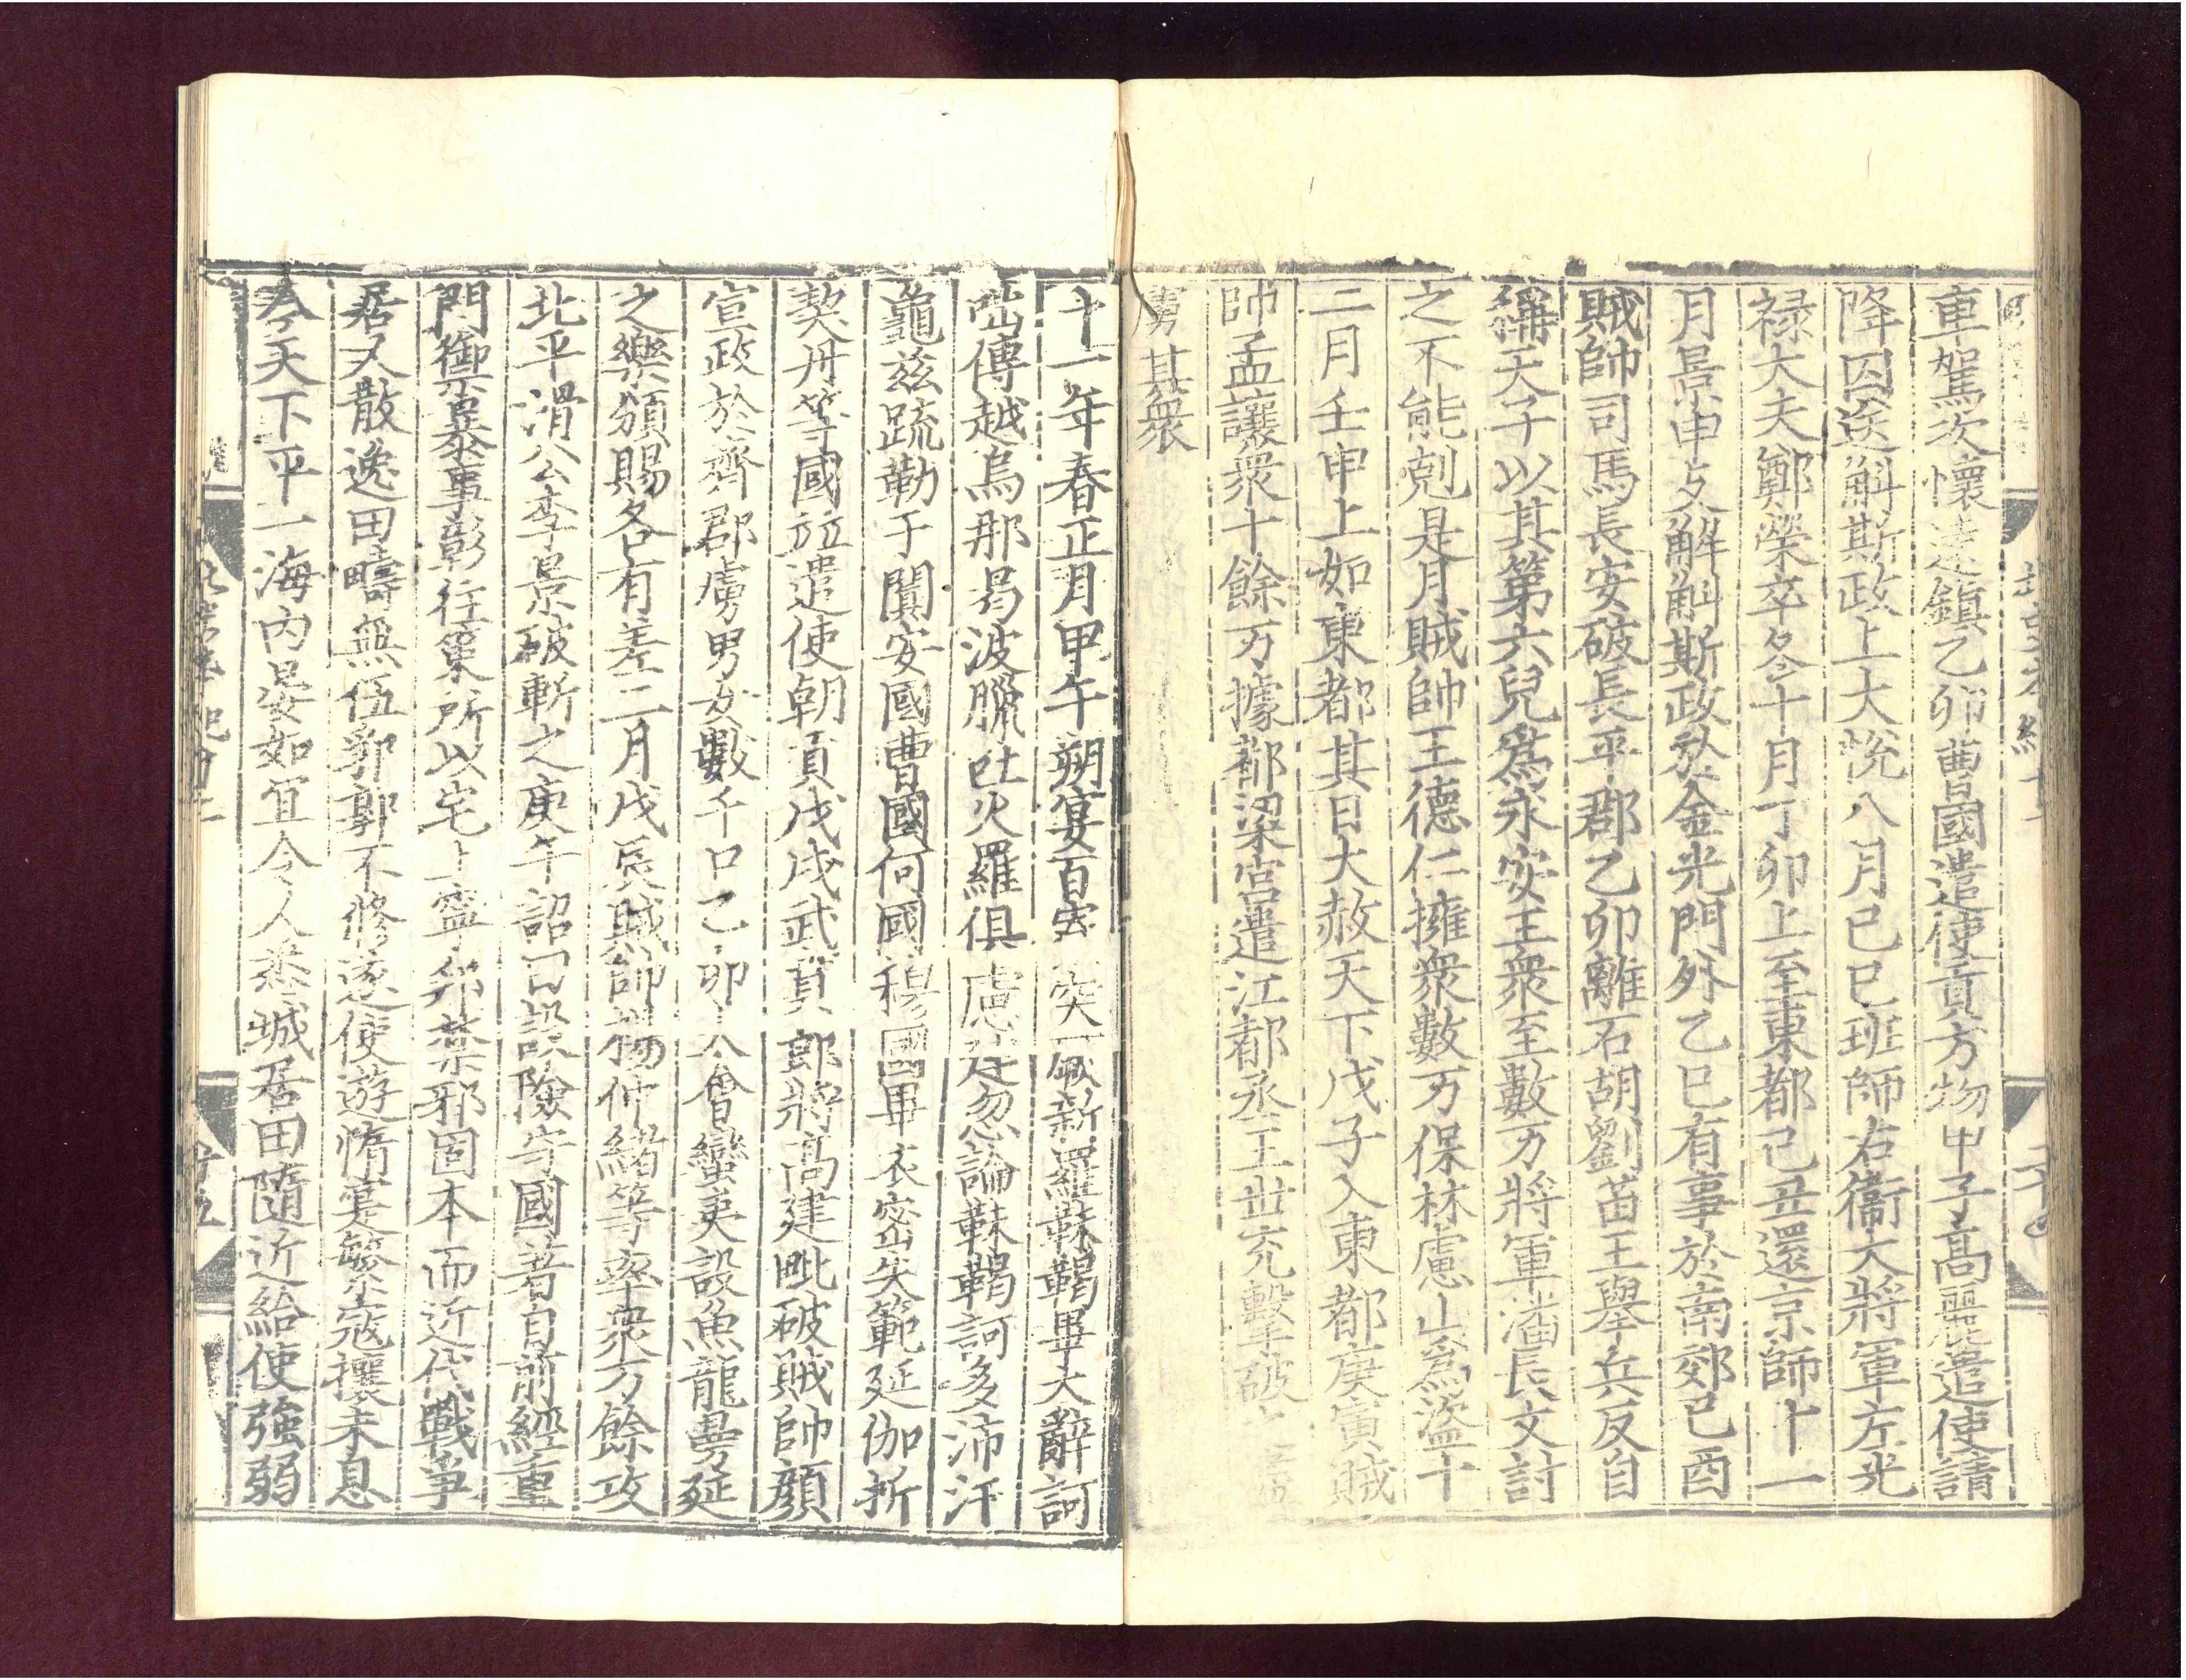 車駕次懷遠鎮乙卯曹國遣使貢方物甲子高麗遣使請
降囚送斛斯政上大悅八月己巳班師右衞大將軍左光
禄大夫鄭榮卒冬十月丁卯上至東都己丑還京師十一
月景申支解斛斯政於金光門外乙巳有事於南郊己酉
賊帥司馬長安破長平郡乙卯離石胡劉苗王舉兵反自
稱天子以其第六兒爲永安王衆至數万將軍潘長文討
之不能剋是月賊帥王德仁擁衆數万保林慮山爲盗十
二月壬申上如東都其日大赦天下戊子入東都庚寅賊
帥孟讓衆十餘万據都梁宮遣江都丞王世充擊破之
虜其衆
十一年春正月甲午朔宴百寮突厥新羅靺鞨畢大辭訶
咄傳越烏那曷波臘吐火羅俱慮建忽論靺鞨訶多沛汗
龜兹疏勒于闐安國曹國何國穆國畢衣密失範延伽折
契丹等國並遣使朝貢戊戌武賁郎將高建毗破賊帥顔
宣政於齊郡虜男女數千口乙卯大會蠻夷設魚龍曼延
之樂頒賜各有差二月戊辰賊帥楊仲緒等率衆万餘攻
北平滑公李景破斬之庚午詔曰設險守國著自前經重
門御暴事彰往策所以宅土寧邦禁邪固本而近代戰爭
居人散逸田疇無伍郛郭不修遂使遊惰寔繁寇攘未息
今天下平一海內晏如宜令人悉城居田隨近給使強弱